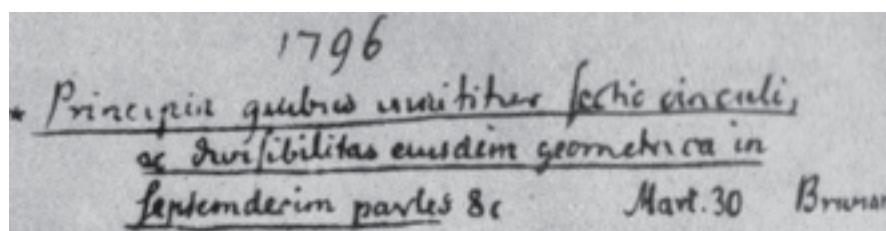 1796
* Principia quibus innititur sectio circuli,
ac divisibilitas eiusdem geometrica in
septemdecim partes &c Mart. 30 Bruns